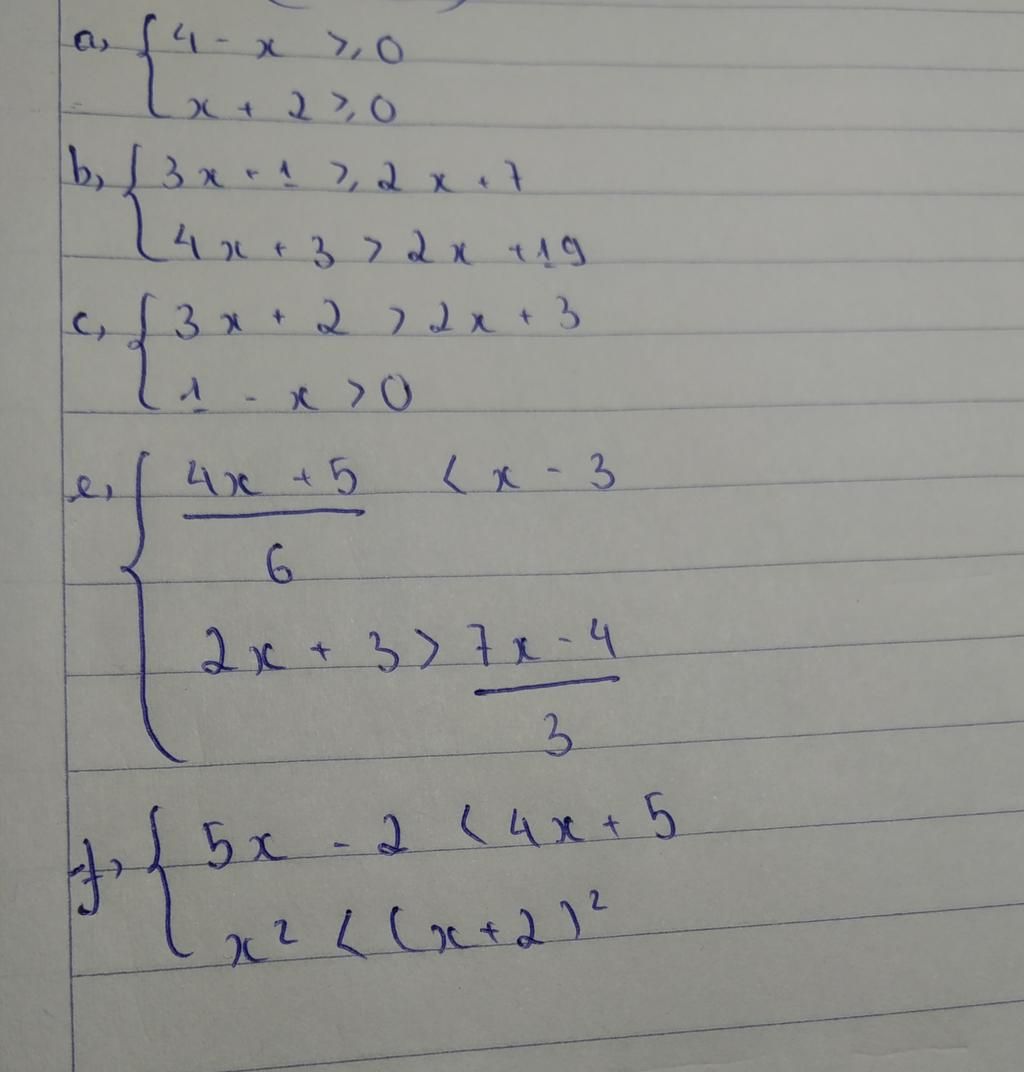 a, { 4 - x ≥ 0
x + 2 ≥ 0
b, { 3x + 1 ≥ 2x + 7
4x + 3 > 2x + 19
c, { 3x + 2 > 2x + 3
1 - x > 0
e, { 4x + 5 < x - 3
6
2x + 3 > 7x - 4
3
f, { 5x - 2 < 4x + 5
x² < (x + 2)²